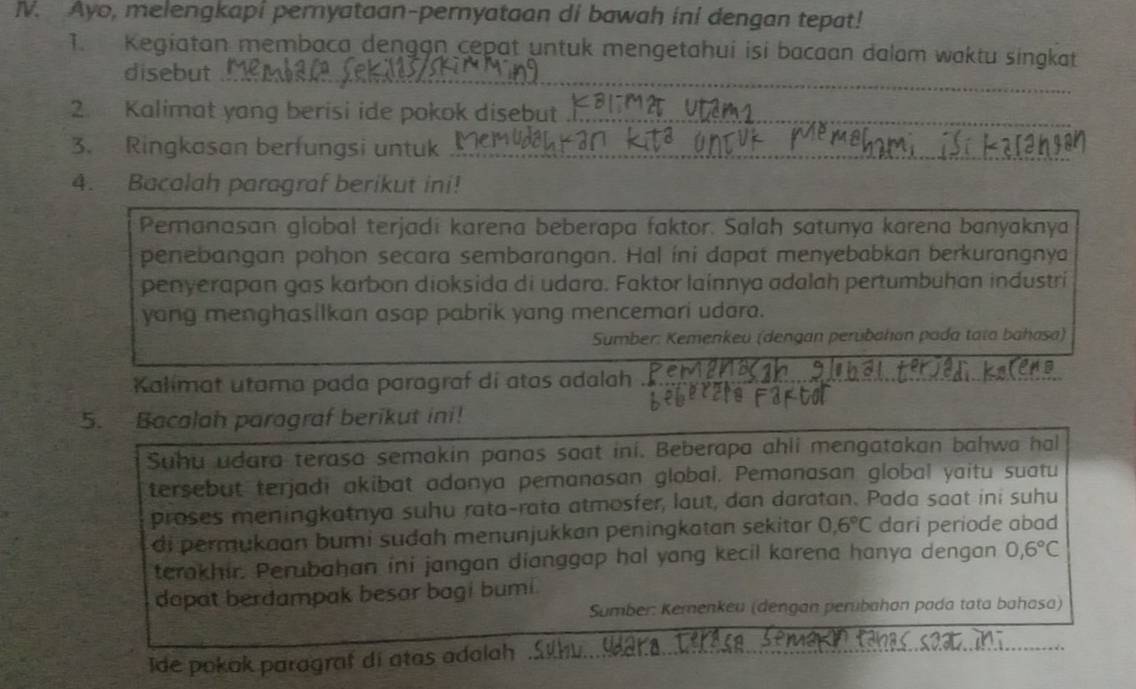 IV. Ayo, melengkapi pernyataan-pernyataan di bawah ini dengan tepat!
1. Kegiatan membaca dengan cepat untuk mengetahui isi bacaan dalam waktu singkat
disebut membaca sekilas/skimming
2. Kalimat yang berisi ide pokok disebut kalimat utama
3. Ringkasan berfungsi untuk memudahkan kita untuk memahami isi karangan
4. Bacalah paragraf berikut ini!
Pemanasan global terjadi karena beberapa faktor. Salah satunya karena banyaknya
penebangan pohon secara sembarangan. Hal ini dapat menyebabkan berkurangnya
penyerapan gas karbon dioksida di udara. Faktor lainnya adalah pertumbuhan industri
yang menghasilkan asap pabrik yang mencemari udara.
Sumber: Kemenkeu (dengan perubahan pada tata bahasa)
Kalimat utama pada paragraf di atas adalah Pemanasan global terjadi karena
beberapa Faktor
5. Bacalah paragraf berikut ini!
Suhu udara terasa semakin panas saat ini. Beberapa ahli mengatakan bahwa hal
tersebut terjadi akibat adanya pemanasan global. Pemanasan global yaitu suatu
proses meningkatnya suhu rata-rata atmosfer, laut, dan daratan. Pada saat ini suhu
di permukaan bumi sudah menunjukkan peningkatan sekitar 0,6°C dari periode abad
terakhir. Perubahan ini jangan dianggap hal yang kecil karena hanya dengan 0,6°C
dapat berdampak besar bagi bumi.
Sumber: Kemenkeu (dengan perubahan pada tata bahasa)
Ide pokok paragraf di atas adalah Suhu udara terasa semakin panas saat ini